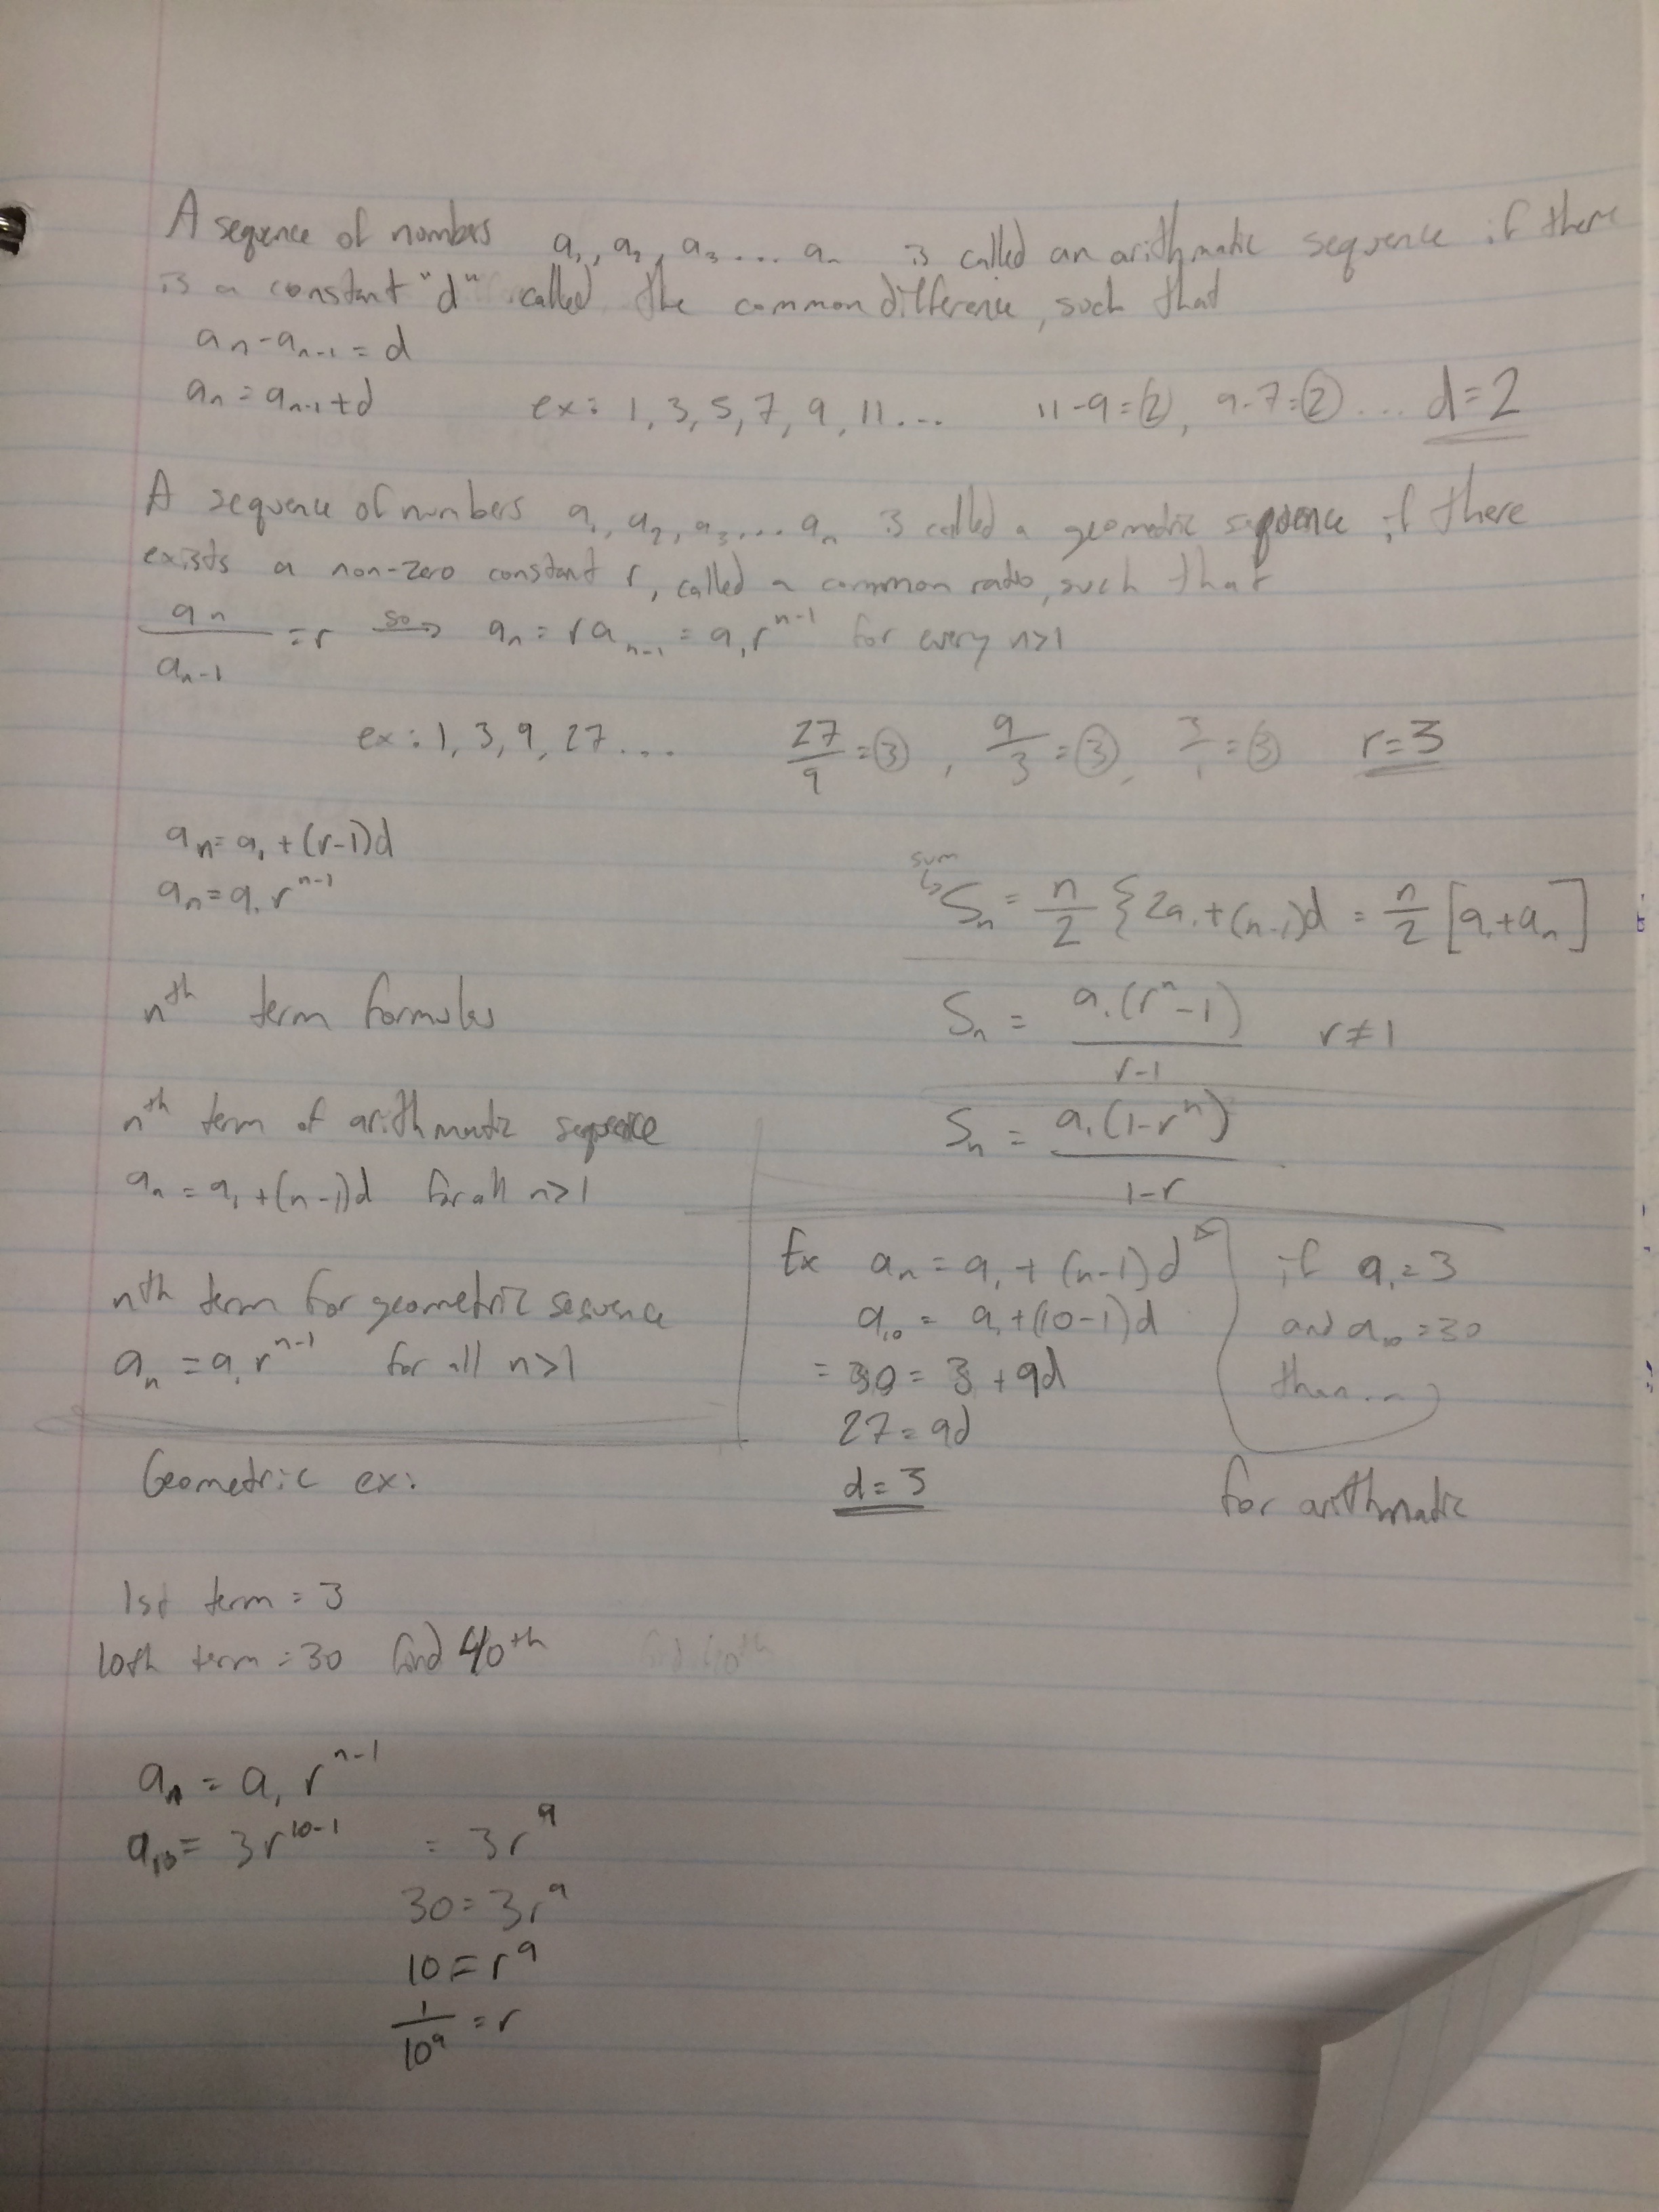 A sequence of numbers a₁, a₂, a₃ .... aₙ is called an arithmatic sequence if there
is a constant "d" called the common difference, such that
aₙ - aₙ₋₁ = d
aₙ = aₙ₋₁ + d ex: 1, 3, 5, 7, 9, 11 ... 11-9=2, 9-7=2 ... d=2
A sequence of numbers a₁, a₂, a₃, ... aₙ is called a geometric sequence if there
exists a non-zero constant r, called a common ratio, such that
aₙ/aₙ₋₁ = r so→ aₙ = r aₙ₋₁ = a₁rⁿ⁻¹ for every n>1
ex: 1, 3, 9, 27 ... 27/9 = 3, 9/3 = 3, 3/1 = 3 r=3
aₙ = a₁ + (r-1)d
aₙ = a₁rⁿ⁻¹
sum
Sₙ = n/2 { 2a₁ + (n-1)d = n/2 [a₁ + aₙ]
nth term formulas
Sₙ = a₁(rⁿ-1)/r-1 r≠1
nth term of arithmatic sequence
Sₙ = a₁(1-rⁿ)/1-r
aₙ = a₁ + (n-1)d for all n>1
nth term for geometric sequence
aₙ = a₁rⁿ⁻¹ for all n>1
Ex aₙ = a₁ + (n-1)d if a₁=3
a₁₀ = a₁ + (10-1)d and a₁₀ = 30
= 30 = 3 + 9d then...
27 = 9d
d = 3 for arithmatic
Geometric ex:
1st term = 3
10th term = 30 find 40th
aₙ = a₁ rⁿ⁻¹
a₁₀ = 3r¹⁰⁻¹ = 3r⁹
30 = 3r⁹
10 = r⁹
1/10⁹ = r